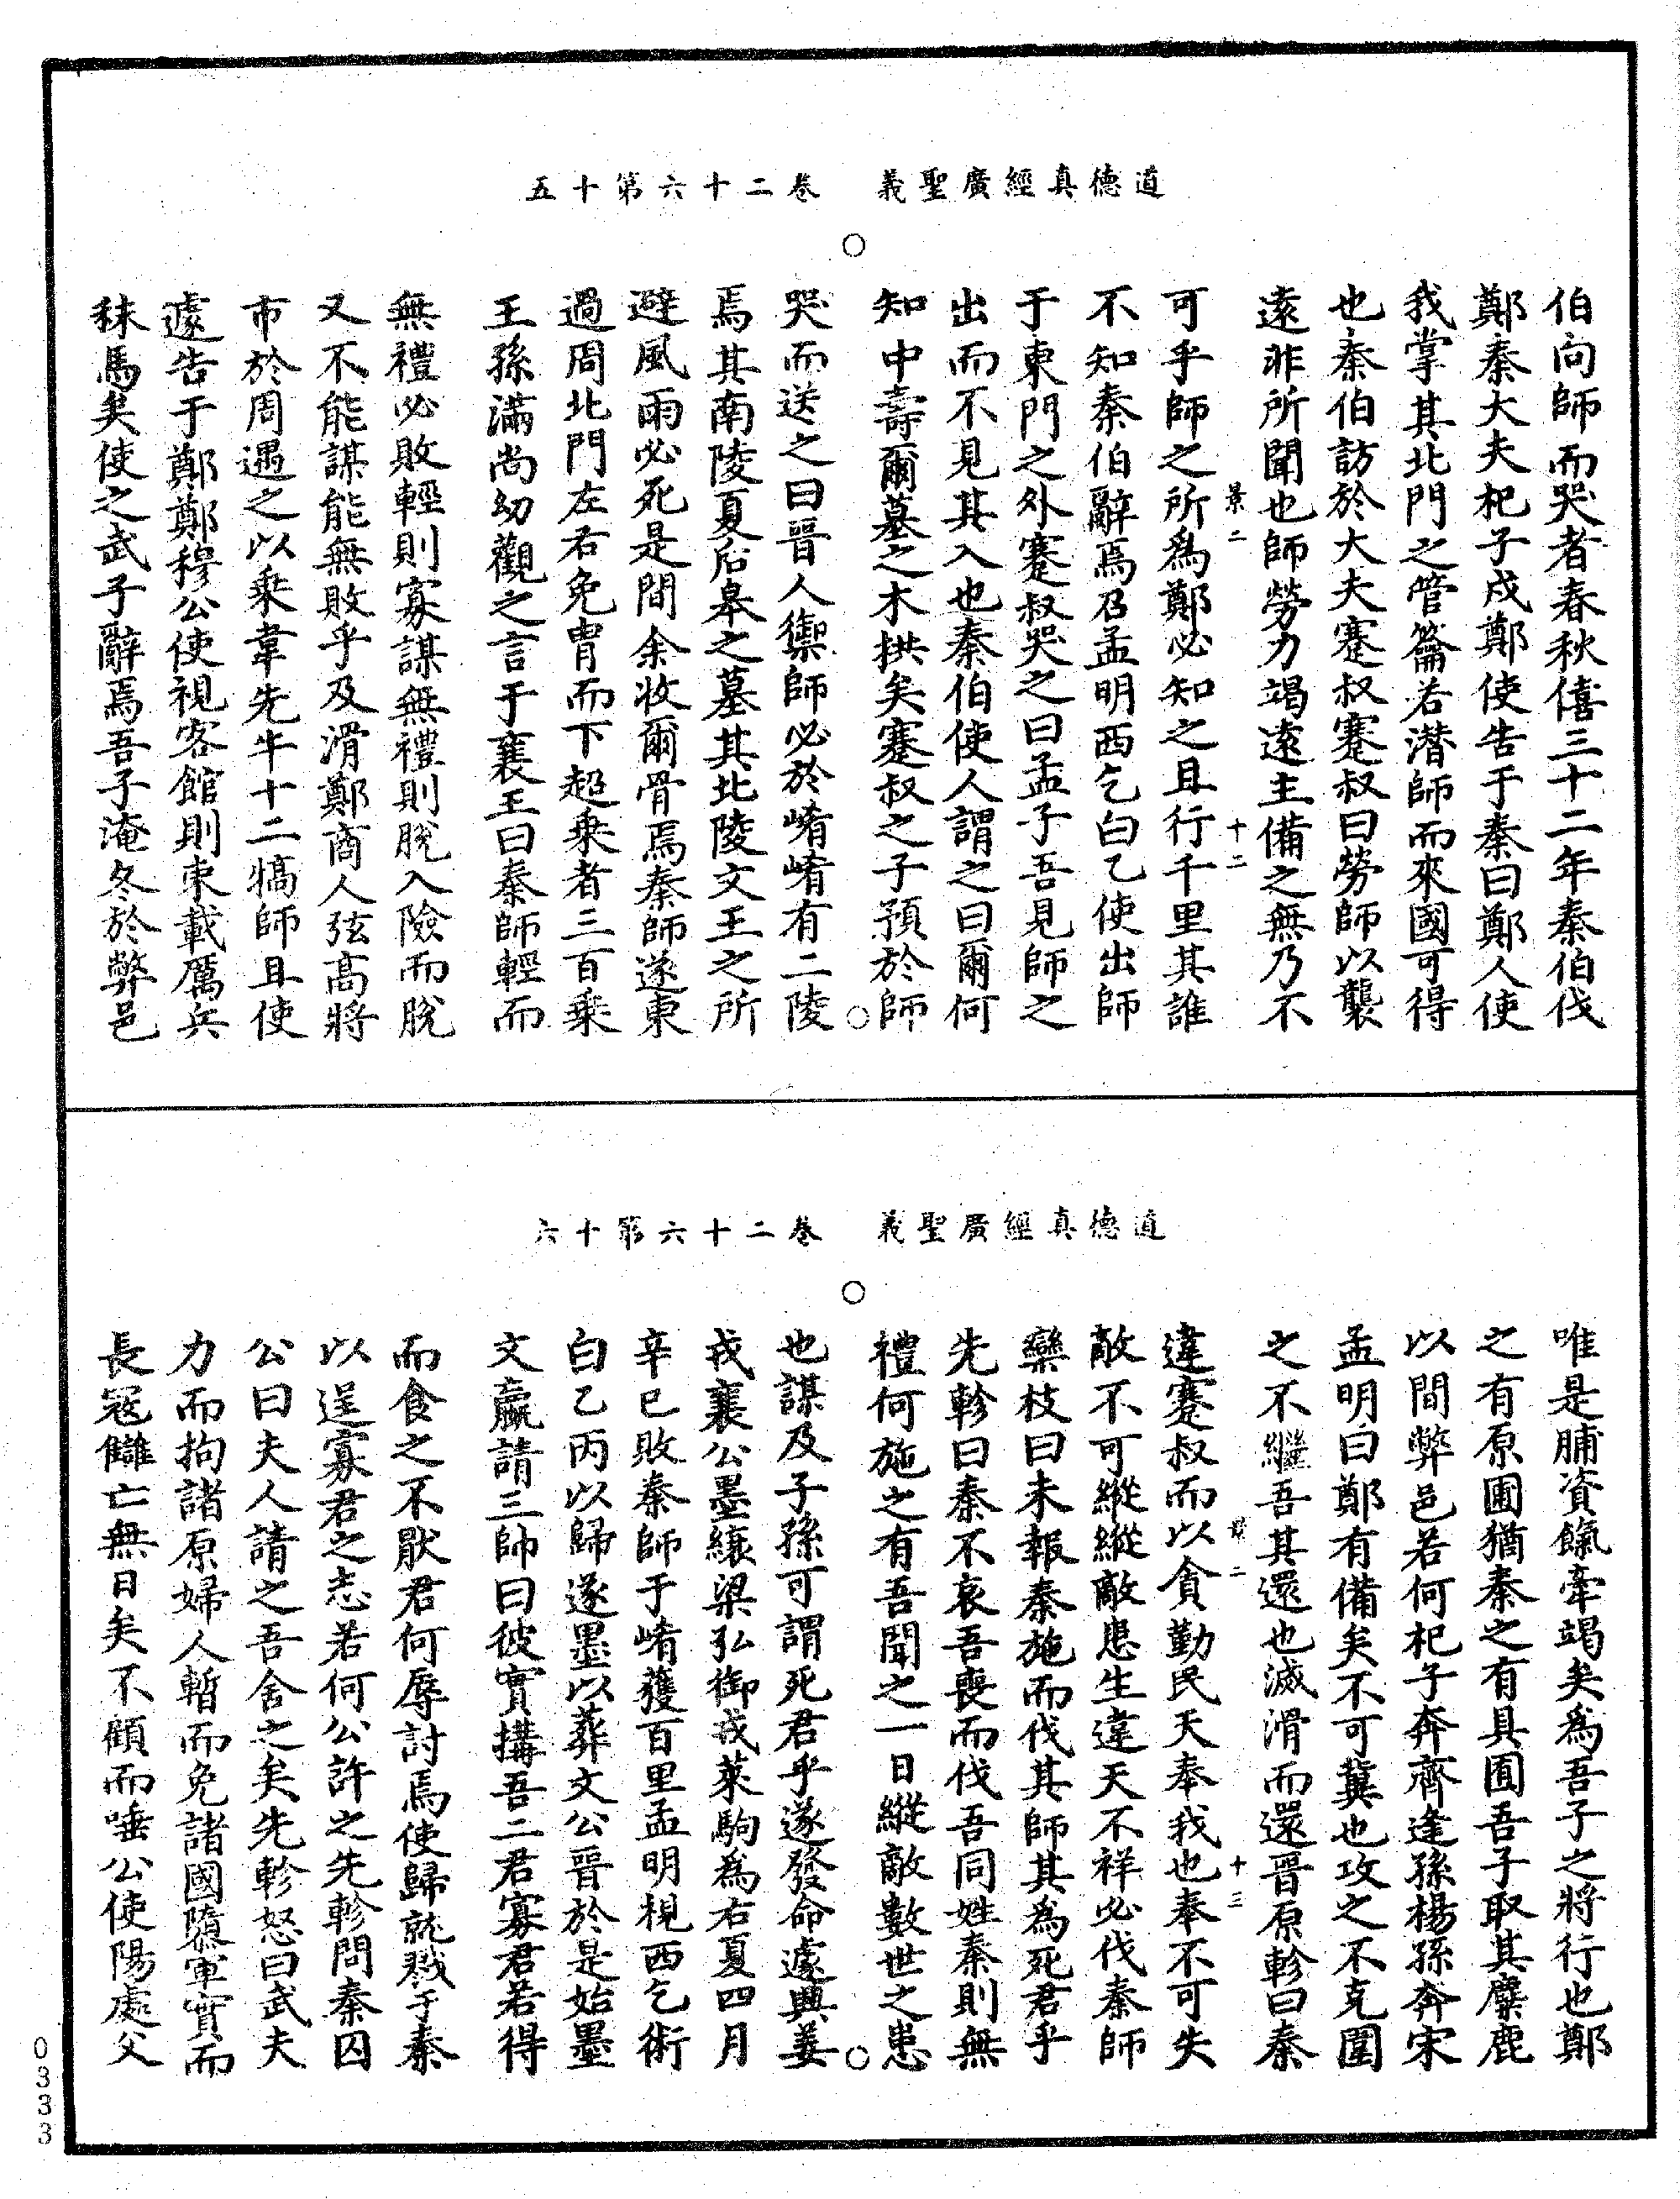 道德真經廣聖義　卷二十六第十五
伯向師而哭者春秋僖三十二年秦伯伐
鄭秦大夫杞子戍鄭使告于秦曰鄭人使
我掌其北門之管籥若潜師而來國可得
也秦伯訪於大夫蹇叔蹇叔曰勞師以襲
遠非所聞也師勞力竭遠主備之無乃不
景二　十二
可乎師之所爲鄭必知之且行千里其誰
不知秦伯辭焉召孟明西乞白乙使出師
于東門之外蹇叔哭之曰孟子吾見師之
出而不見其入也秦伯使人謂之曰爾何
知中壽爾墓之木拱矣蹇叔之子預於師
哭而送之曰晉人禦師必於崤崤有二陵
焉其南陵夏后皋之墓其北陵文王之所
避風雨必死是間余收爾骨焉秦師遂東
過周北門左右免胄而下超乗者三百乗
王孫滿尚幼觀之言于襄王曰秦師輕而
無禮必敗輕則寡謀無禮則脫入險而脫
又不能謀能無敗乎及滑鄭商人弦高將
市於周遇之以乗韋先牛十二犒師且使
遽告于鄭鄭穆公使視客館則束載厲兵
秣馬矣使之武子辭焉吾子淹久於弊邑
道德真經廣聖義　卷二十六第十六
唯是脯資餼牽竭矣爲吾子之將行也鄭
之有原圃猶秦之有具囿吾子取其麋鹿
以間弊邑若何杞子奔齊逢孫楊孫奔宋
孟明曰鄭有備矣不可冀也攻之不克圍
之不繼吾其還也滅滑而還晉原軫曰秦
景二　十三
違蹇叔而以貪勤民天奉我也奉不可失
敵不可縱縱敵患生違天不祥必伐秦師
欒枝曰未報秦施而伐其師其爲死君乎
先軫曰秦不哀吾喪而伐吾同姓秦則無
禮何施之有吾聞之一日縱敵數世之患
也謀及子孫可謂死君乎遂發命遽興姜
戎襄公墨縗梁弘御戎萊駒爲右夏四月
辛巳敗秦師于崤獲百里孟明視西乞術
白乙丙以歸遂墨以葬文公晉於是始墨
文嬴請三帥曰彼實搆吾二君寡君若得
而食之不猒君何辱討焉使歸就戮于秦
以逞寡君之志若何公許之先軫問秦囚
公曰夫人請之吾舍之矣先軫怒曰武夫
力而拘諸原婦人暫而免諸國隳軍實而
長寇讎亡無日矣不顧而唾公使陽處父
0333